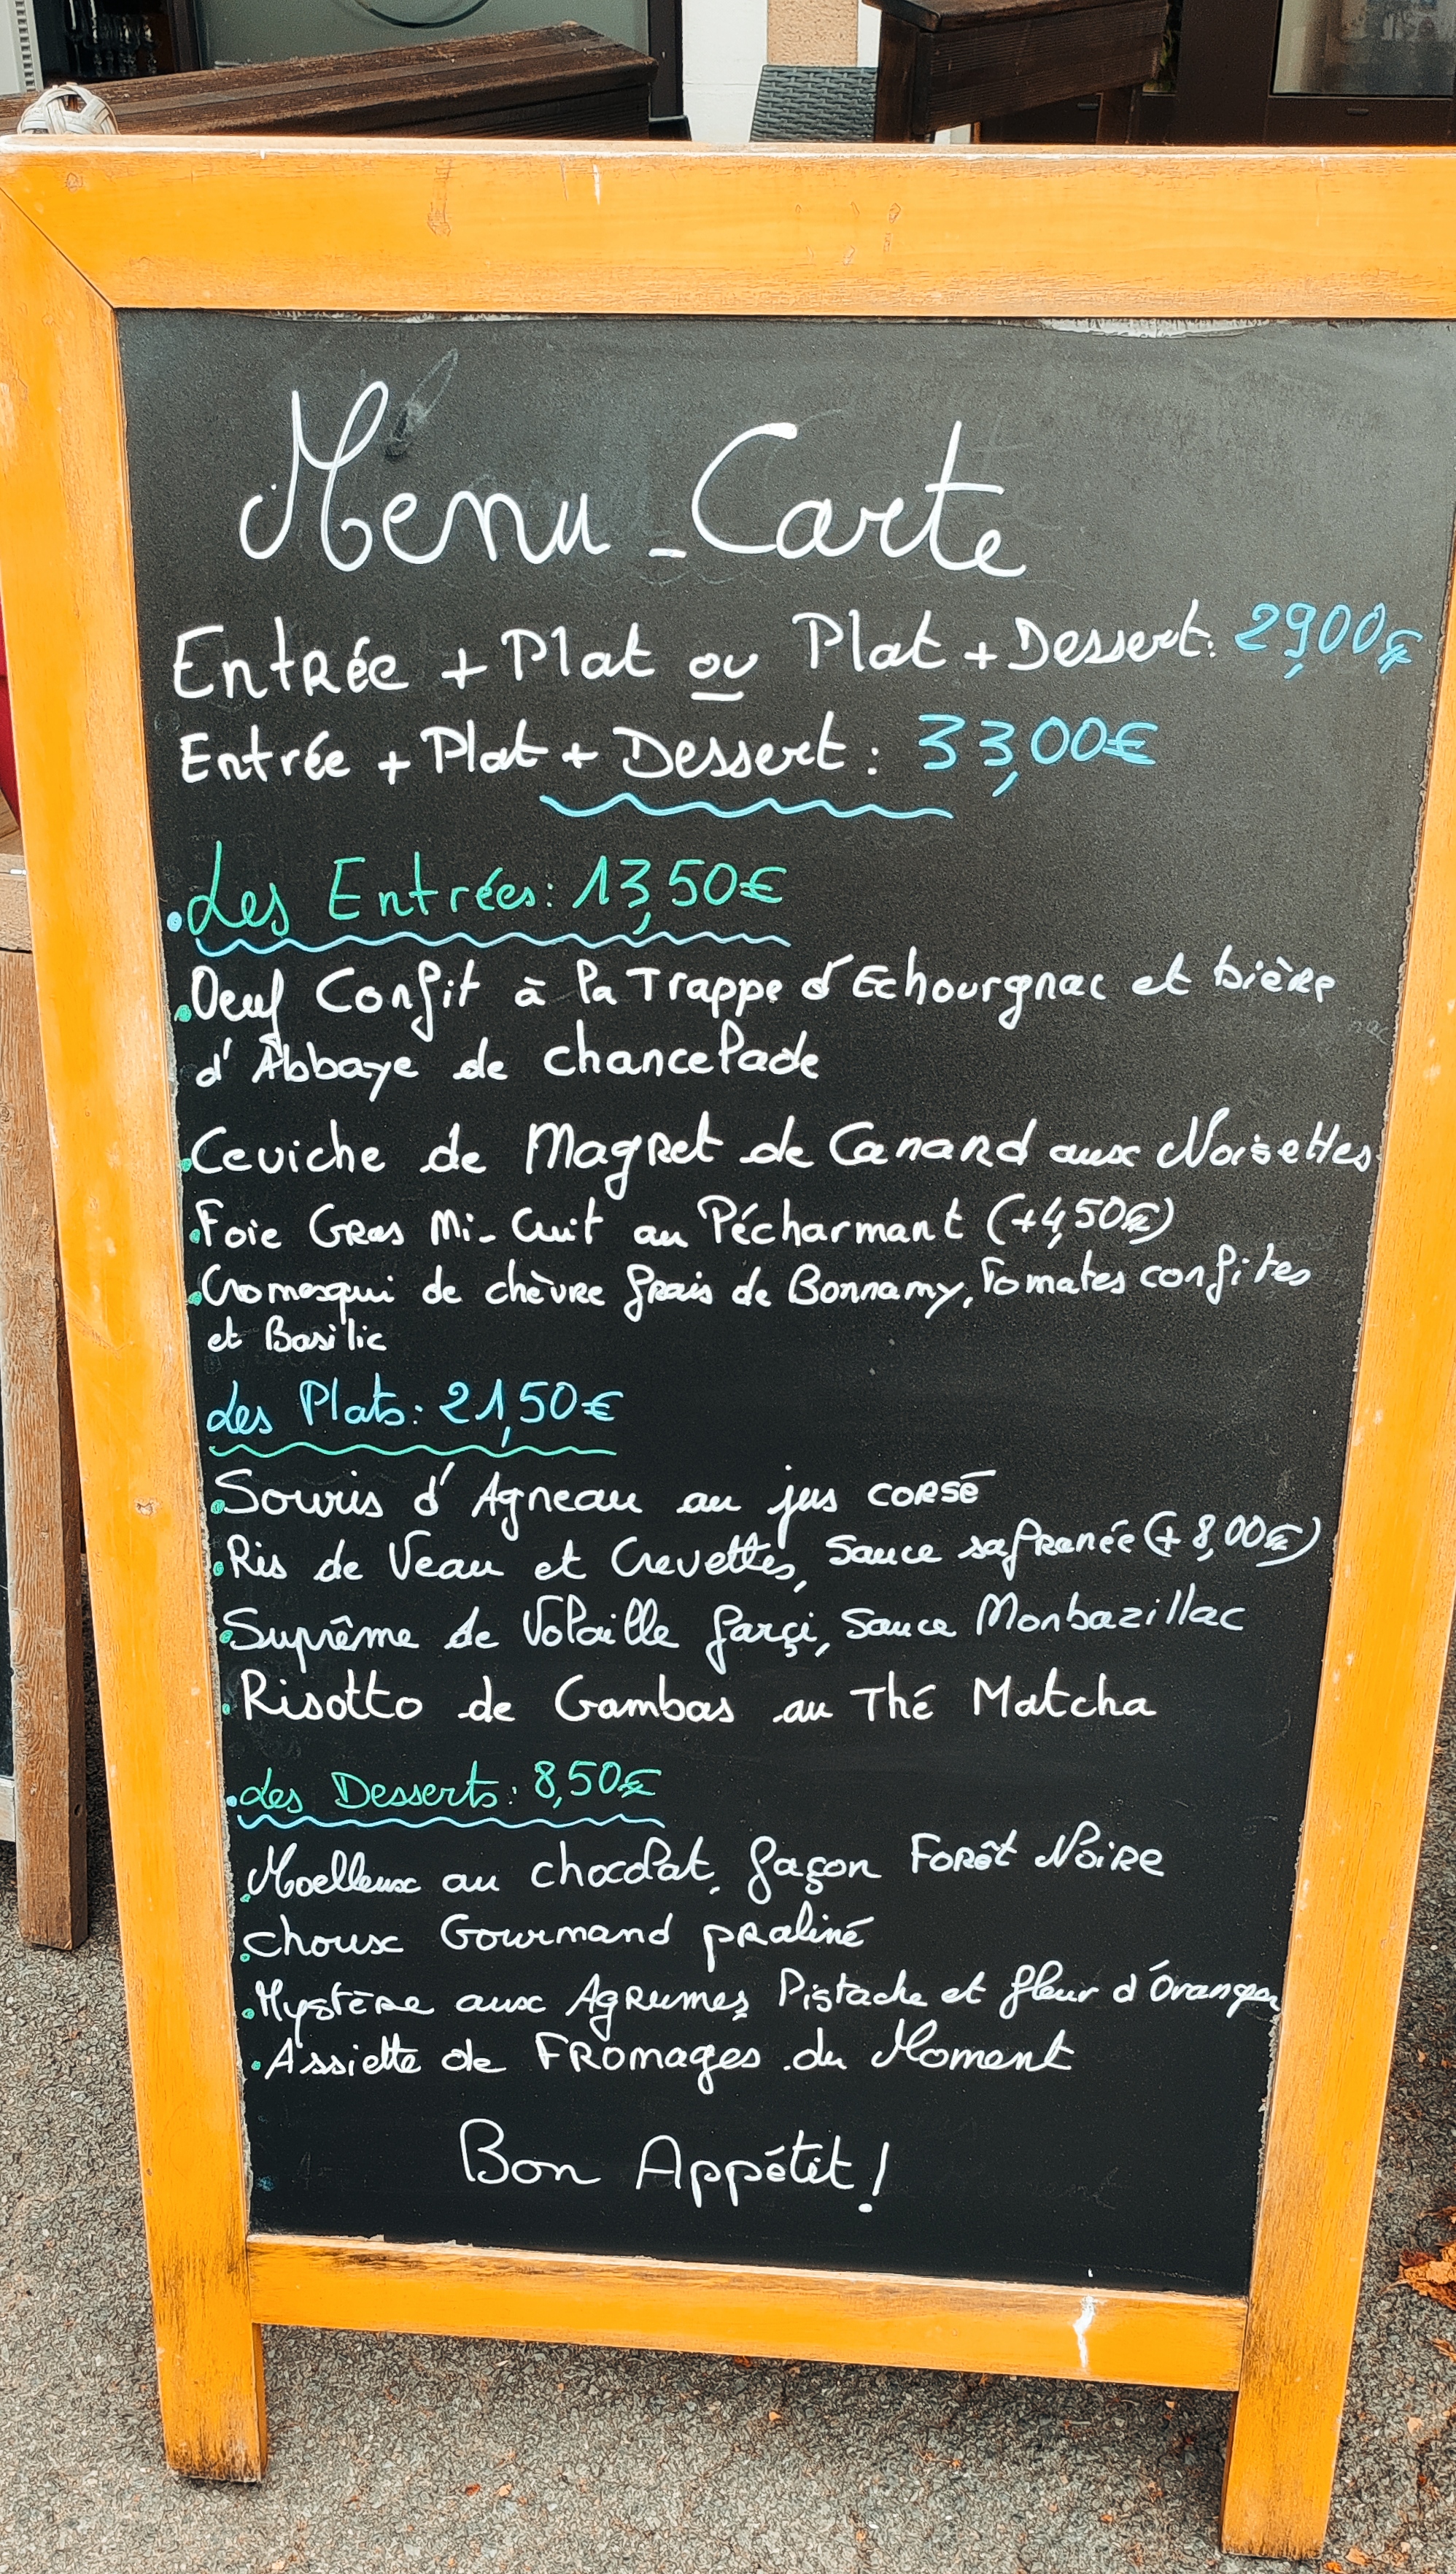 Menu - Carte
Entrée + Plat ou Plat + Dessert: 29,00€
Entrée + Plat + Dessert: 33,00€
Les Entrées: 13,50€
Oeuf Confit à la Trappe d'Echourgnac et bière
d'Abbaye de chancelade
Ceviche de Magret de Canard aux Noisettes
Foie Gras Mi-Cuit au Pécharmant (+4,50€)
Cromesqui de chèvre frais de Bonnamy, Tomates confites
et Basilic
Les Plats: 21,50€
Souris d'Agneau au jus corsé
Ris de Veau et Crevettes, Sauce safranée (+8,00€)
Suprême de Volaille farçi, Sauce Monbazillac
Risotto de Gambas au Thé Matcha
Les Desserts: 8,50€
Moelleux au chocolat, façon Forêt Noire
choux Gourmand praliné
Mystère aux Agrumes, Pistache et fleur d'Oranger
Assiette de Fromages du Moment
Bon Appétit!